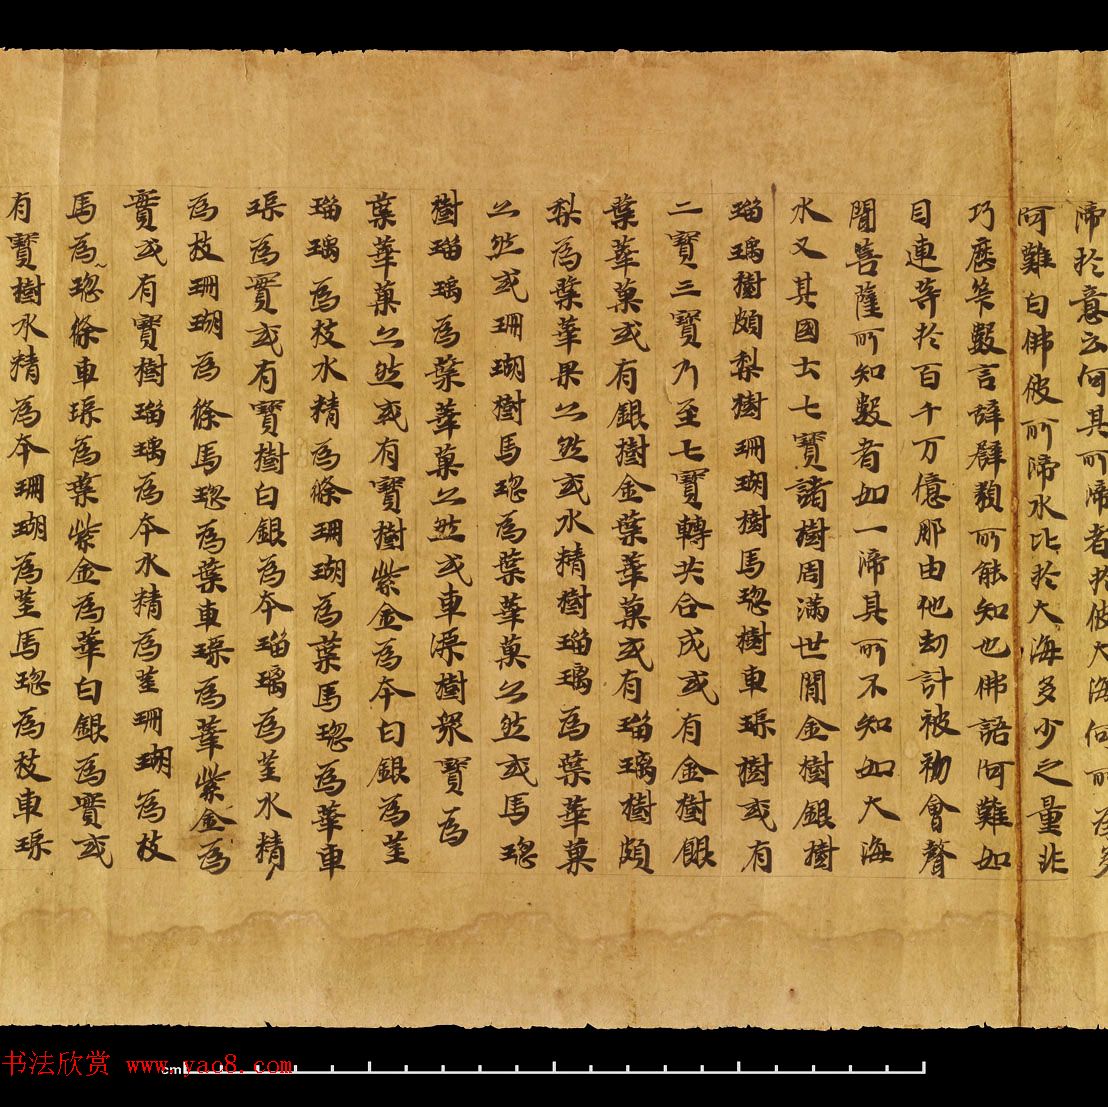 渧於意云何其所渧者於彼大海何所為多
阿難白佛彼所渧水比於大海多少之量非
巧歷筭數言辭辟類所能知也佛語阿難如
目連等於百千万億那由他劫計彼初會聲
聞菩薩所知數者如一渧其所不知如大海
水又其國土七寶諸樹周滿世間金樹銀樹
瑠璃樹頗梨樹珊瑚樹馬瑙樹車璖樹或有
二寶三寶乃至七寶轉共合成或有金樹銀
葉華菓或有銀樹金葉華菓或有瑠璃樹頗
梨為葉華果亦然或水精樹瑠璃為葉華菓
亦然或珊瑚樹馬瑙為葉華菓亦然或馬瑙
樹瑠璃為葉華菓亦然或車璖樹眾寶為
葉華菓亦然或有寶樹紫金為本白銀為莖
瑠璃為枝水精為條珊瑚為葉馬瑙為華車
璖為實或有寶樹白銀為本瑠璃為莖水精
為枝珊瑚為條馬瑙為葉車璖為華紫金為
實或有寶樹瑠璃為本水精為莖珊瑚為枝
馬為瑙條車璖為葉紫金為華白銀為實或
有寶樹水精為本珊瑚為莖馬瑙為枝車璖
书法欣赏 www.yac8.com
cm